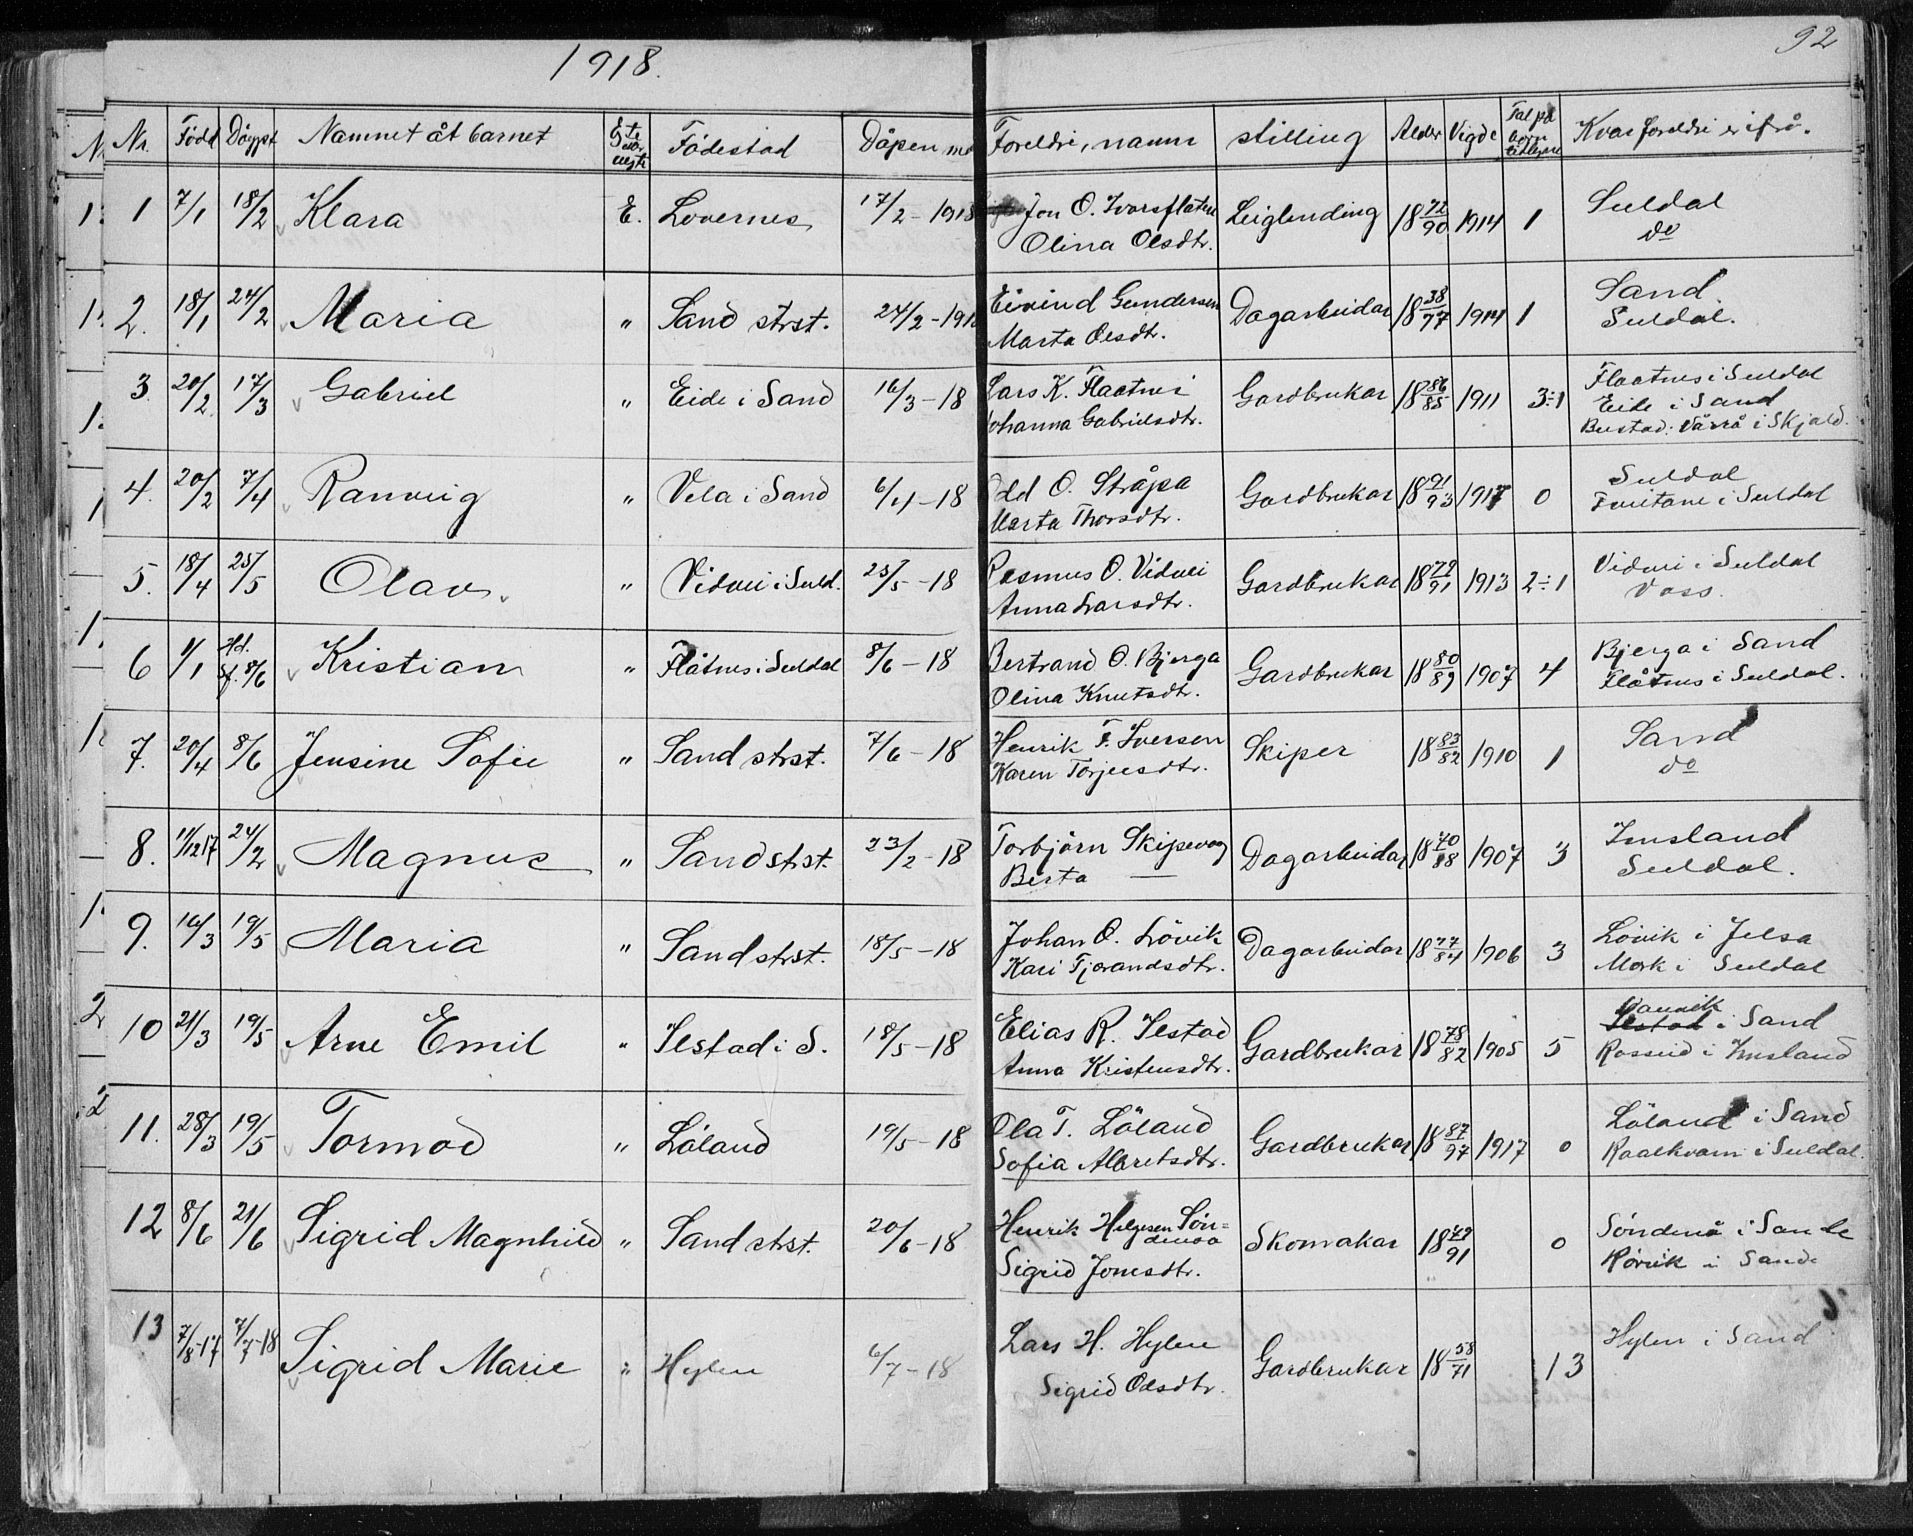 1918.
92
Nr. Född Döypt Namnet åt barnet Fødestad Dåpen Foreldri, namn stilling Alder Vigde Tal på born tidlegare Kvar foreldri er ifrå.
1 7/1 18/2 Klara E. Lovernes 17/2-1918 Jon O. Ivarsflaten Leiglending 18 72/90 1914 1 Suldal
Olina Olsdtr. do
2. 18/1 24/2 Maria " Sand strst. 24/2-191 Eivind Gundersen Dagarbeidar 18 38/77 1914 1 Sand
Marta Olsdtr. Suldal.
3. 20/2 17/3 Gabriel " Eide i Sand 16/3-18 Lars K. Flaatnes Gardbrukar 18 86/85 1911 3÷1 Flaatnes i Suldal
Johanna Gabrielsdtr. Eide i Sand
Bustad: Vårrå i Skjold.
4. 20/2 7/4 Ranveig " Vela i Sand 6/4-18 Odd O. Stråpa Gardbrukar 18 91/93 1917 0 Suldal
Marta Thorsdtr. Foreitane i Suldal
5. 18/4 25/5 Olav " Vidvei i Suld. 25/5-18 Rasmus O. Vidvei Gardbrukar 18 72/91 1913 2÷1 Vidvei i Suldal
Anna Larsdtr. Voss.
6 1/1 Hd. Sf. 8/6 Kristian " Flåtnes i Suldal 8/6-18 Bertrand O. Bjerga Gardbrukar 18 80/89 1907 4 Bjerga i Sand
Olina Knutsdtr. Flåtnes i Suldal.
7. 20/4 8/6 Jensine Sofie " Sand strst. 7/6-18 Henrik F. Iversen Skiper 18 83/82 1910 1 Sand
Karen Torjersdtr. do
8. 11/12 17 24/2 Magnus " Sand strst. 23/2-18 Torbjørn Skipevåg Dagarbeidar 18 70/88 1907 3 Imsland
Berta — Suldal.
9. 16/3 19/5 Maria " Sand strst. 18/5-18 Johan O. Løvik Dagarbeidar 18 77/84 1906 3 Løvik i Jelsa
Kari Tjerandsdtr. Mork i Suldal
10 21/3 19/5 Arne Emil " Ilstad i S. 18/5-18 Elias R. Ilstad Gardbrukar 18 78/82 1905 5 i Sand
Anna Kristensdtr. Rosseid i Imsland
11. 28/3 19/5 Tormod " Løland 19/5-18 Ola T. Løland Gardbrukar 18 87/97 1917 0 Løland i Sand
Sofia Albretsdtr. Raalkvam i Suldal.
12 8/6 21/6 Sigrid Magnhild " Sand strst. 20/6-18 Henrik Helgesen Søn=
denaa Skomakar 18 49/91 0 Søndenå i Sande
Sigrid Jonesdtr. Rørvik i Sande
13 7/8-17 7/7-18 Sigrid Marie " Hylen 6/7-18 Lars H. Hylen Gardbrukar 18 58/71 13 Hylen i Sand
Sigrid Olsdtr.